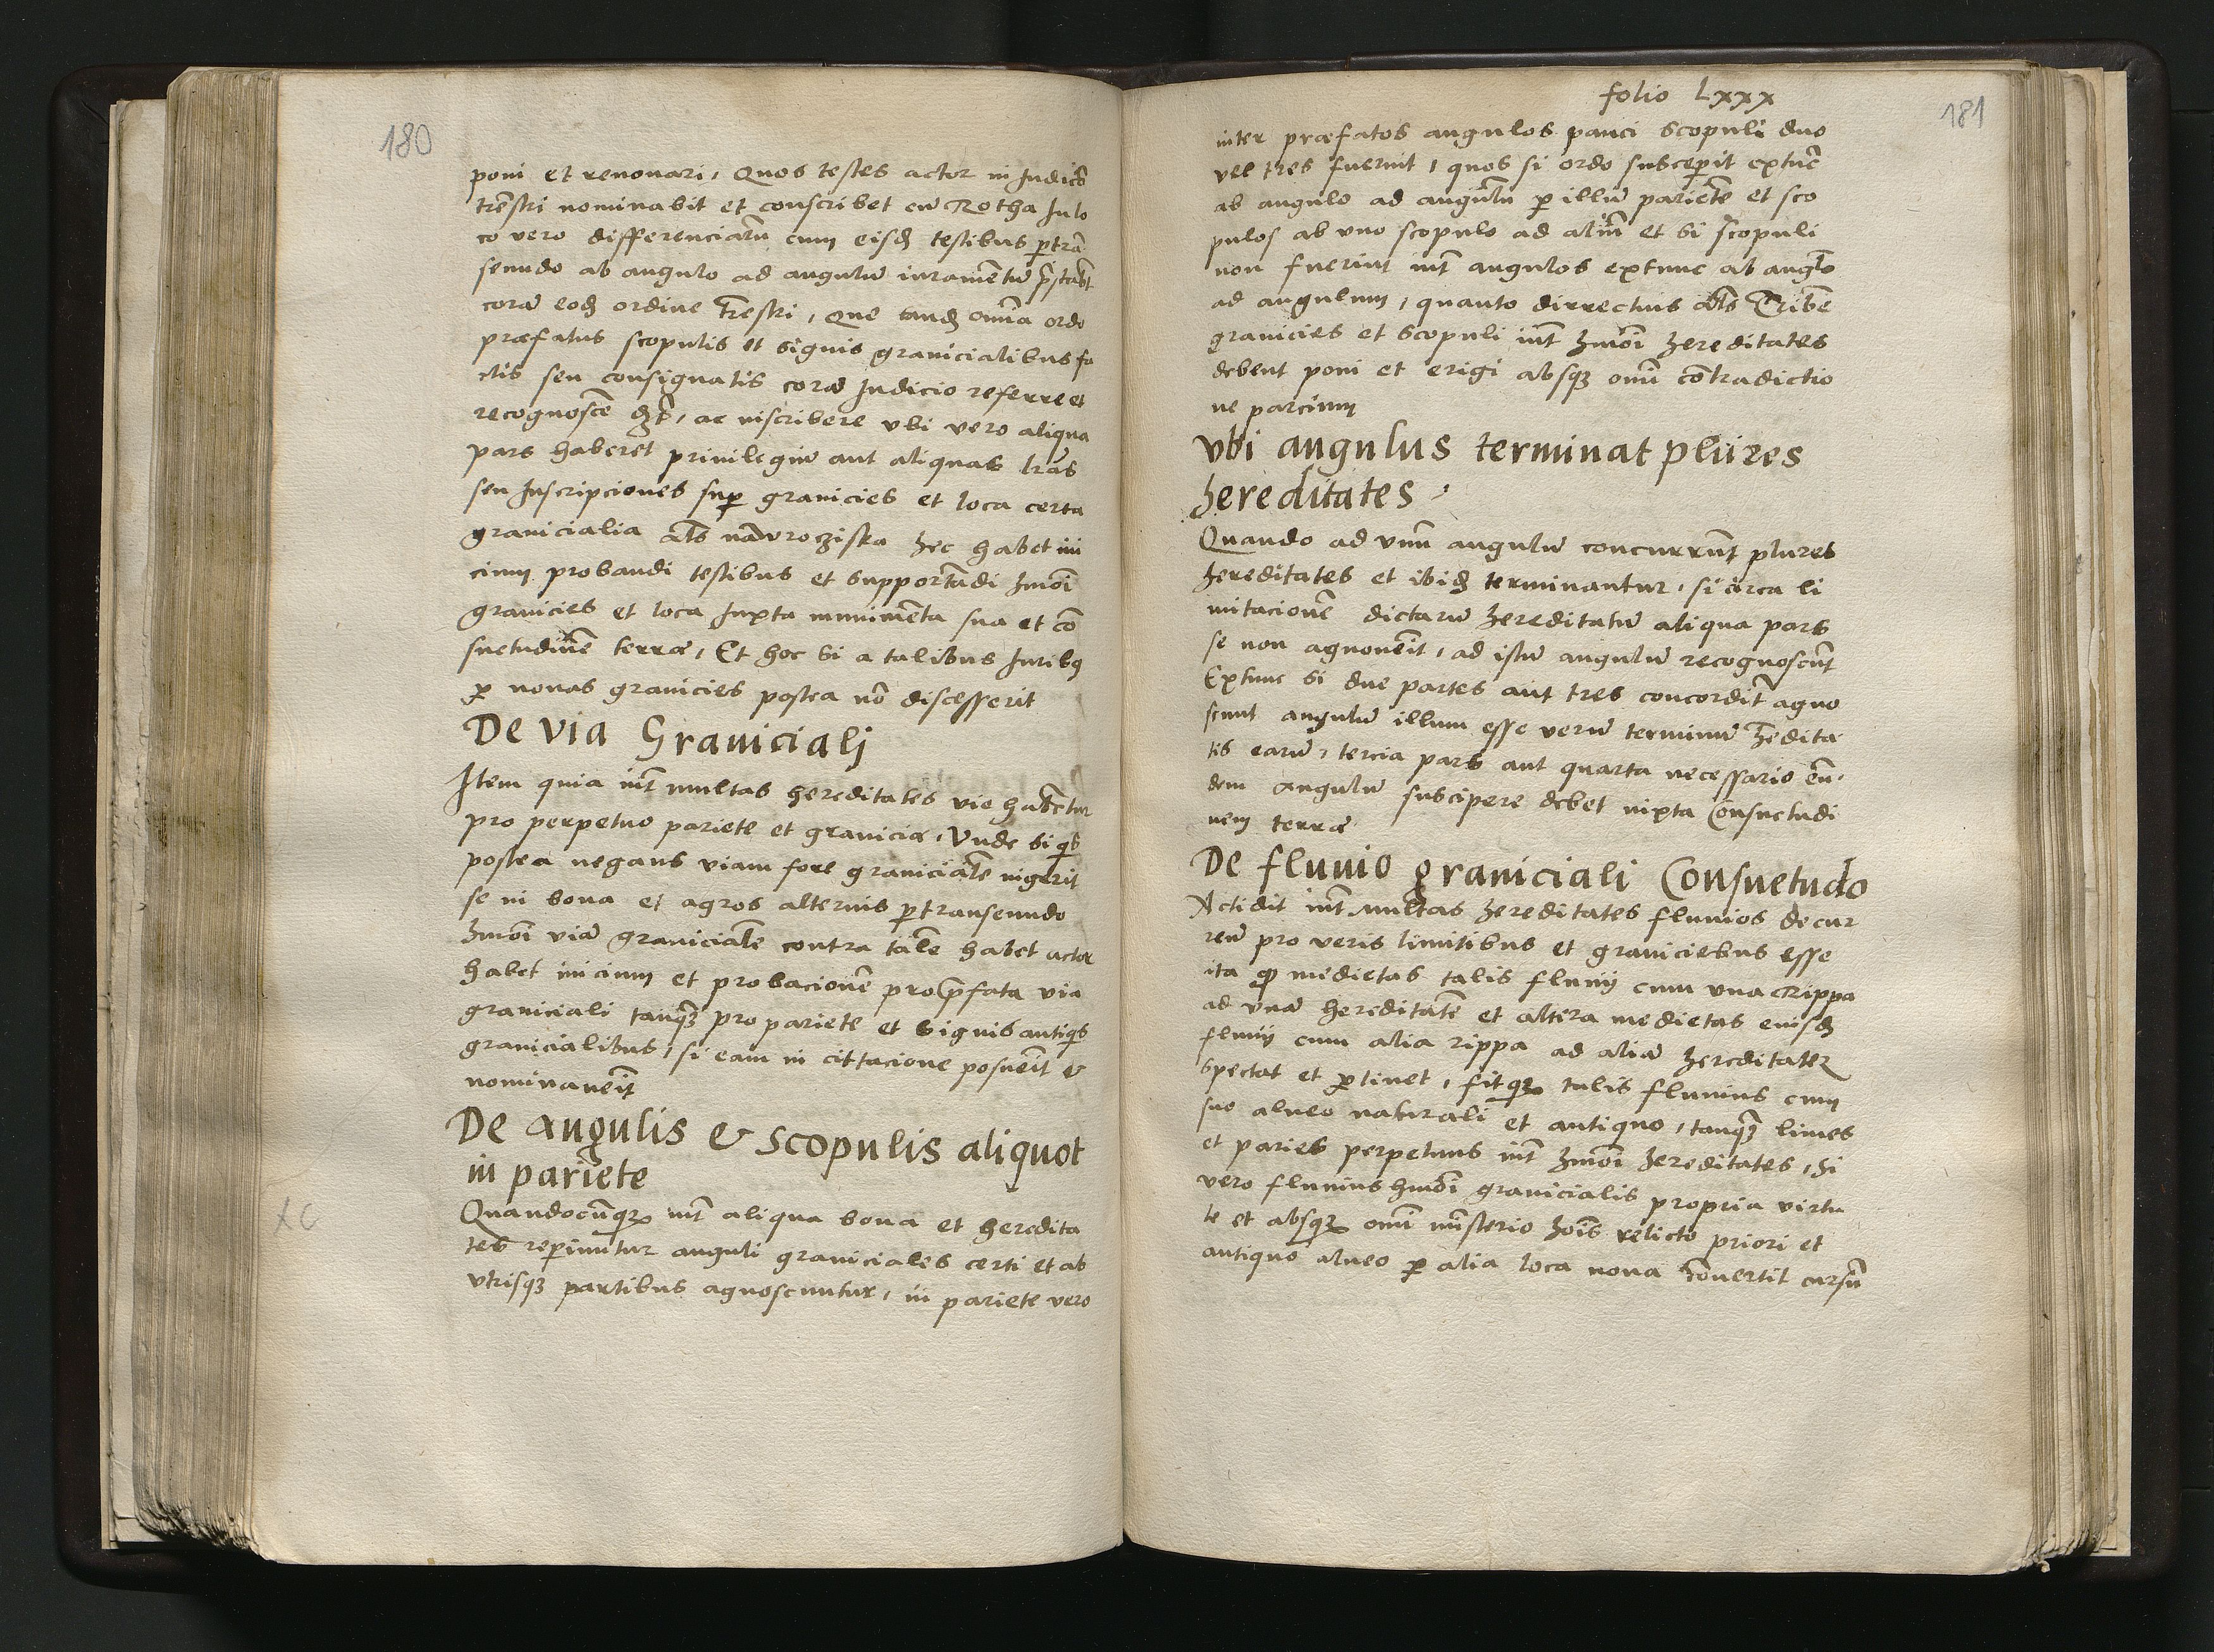 180
poni et renouari, Quos testes actor in Judicio
trestri nominabit et conscribet cu Rotha Julo
co vero differenciaru cum eisd testibus ptra
seundo ab angulo ad angulu iuramentu pstabt
cora eod ordine trestri, Que tand omia ordo
præfatus scopulis et signis granicialibus fa
ctis seu consignatis cora Judicio referre et
recognosce dzt, ac inscribere vbi vero aliqua
pars haberet priuilegiu aut aliquas lras
seu Inscripciones sup granicies et loca certa
granicialia als nawroczista hec habet ini
cium probandi testibus et supportadi hmoi
granicies et loca Juxta munimeta sua et co
suetudine terræ, Et hoc si a talibus Juribq
p nouas granicies postea no discesserit
De via Granicialj
Item quia int multas hereditates vie habetur
pro perpetuo pariete et granicia, Vnde si qs
postea negans viam fore graniciale ingerit
se in bona et agros alterius ptranseundo
hmoi via graniciale contra tale habet actor
habet inicium et probacione pro pfata via
graniciali tanqz pro pariete et signis antiqs
granicialibus, si eam in cittacione posuerit &
nominauerit
De angulis & scopulis aliquot
in pariete
XC
Quandocuqz int aliqua bona et heredita
tes reperiuntur anguli graniciales certi et ab
vtrisqz partibus agnoscuntur, in pariete vero
folio Lxxx
181
inter præfatos angulos pauci scopuli duo
vel tres fuerint, quos si ordo susceperit extuc
ab angulo ad angulu p illu pariete et sco
pulos ab vno scopulo ad aliu et si scopuli
non fuerint int angulos extunc ab angulo
ad angulum, quanto dirrectius als
granicies et scopuli int hmoi hereditates
debent poni et erigi absqz omi cotradictio
ne parcium
vbi angulus terminat plures
hereditates
Quando ad vnu angulu concurrunt plures
hereditates et ibid terminantur, si circa li
mitacione dictaru hereditatu aliqua pars
se non agnouerit, ad istu angulu recognoscut
Extunc si due partes aut tres concordit agno
scunt angulu illum esse veru terminu hedita
tis earu, tercia pars aut quarta necessario eun
dem angulu suscipere debet iuxta Consuetudi
nem terræ
De fluuio graniciali Consuetudo
Actidit int multas hereditates fluuios decur
reu pro veris limitibus et graniciebus esse
ita q medietas talis fluuij cum vna Rippa
ad vna hereditate et altera medietas eiusd
fluuij cum alia rippa ad alia hereditatez
spectat et ptinet, fitqz talis fluuius cum
suo alueo naturali et antiquo, tanqz limes
et paries perpetuus int hmoi hereditates, Si
vero fluuius hmoi granicialis propria virtu
te et absqz omi misterio hois relicto priori et
antiquo alueo p alia loca noua couertit cursu